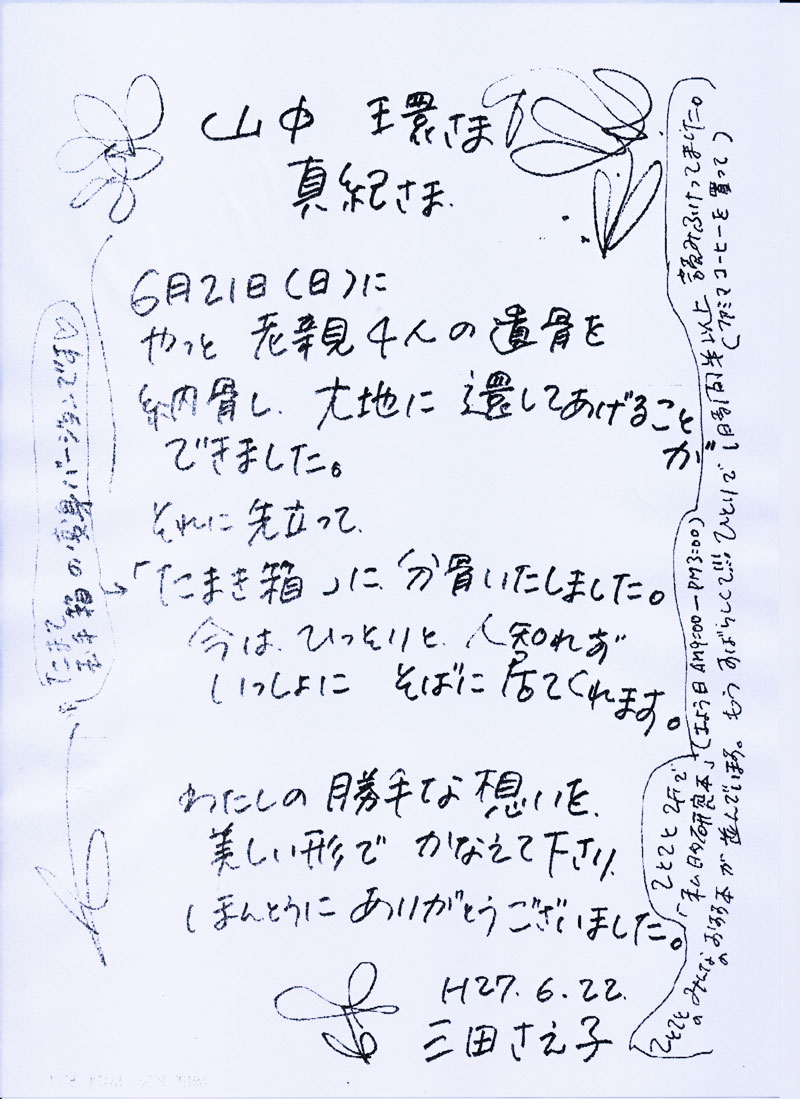 山中 環さま
真紀さま.
6月21日(日)に
やっと 老親4人の遺骨を
納骨し、大地に 還してあげること
が
できました。
それに 先立って、
「たまき箱」に、分骨いたしました。
今は、ひっそりと、人知れず
いっしょに そばに 居てくれます。
わたしの 勝手な 想いを、
美しい形で かなえて下さり、
ほんとうに ありがとうございました。
H27.6.22.
三田さえ子
てとてと 2Fで
「私的研究本」てしょう日 AM9:00-PM3:00)
てとてと みんな おある本が 並んでいます。もう すばらしくて!!! ひとりで 1日 時間半以上 読みふけってました。
(ファミマコーヒーを買って)
の 箱
たまて